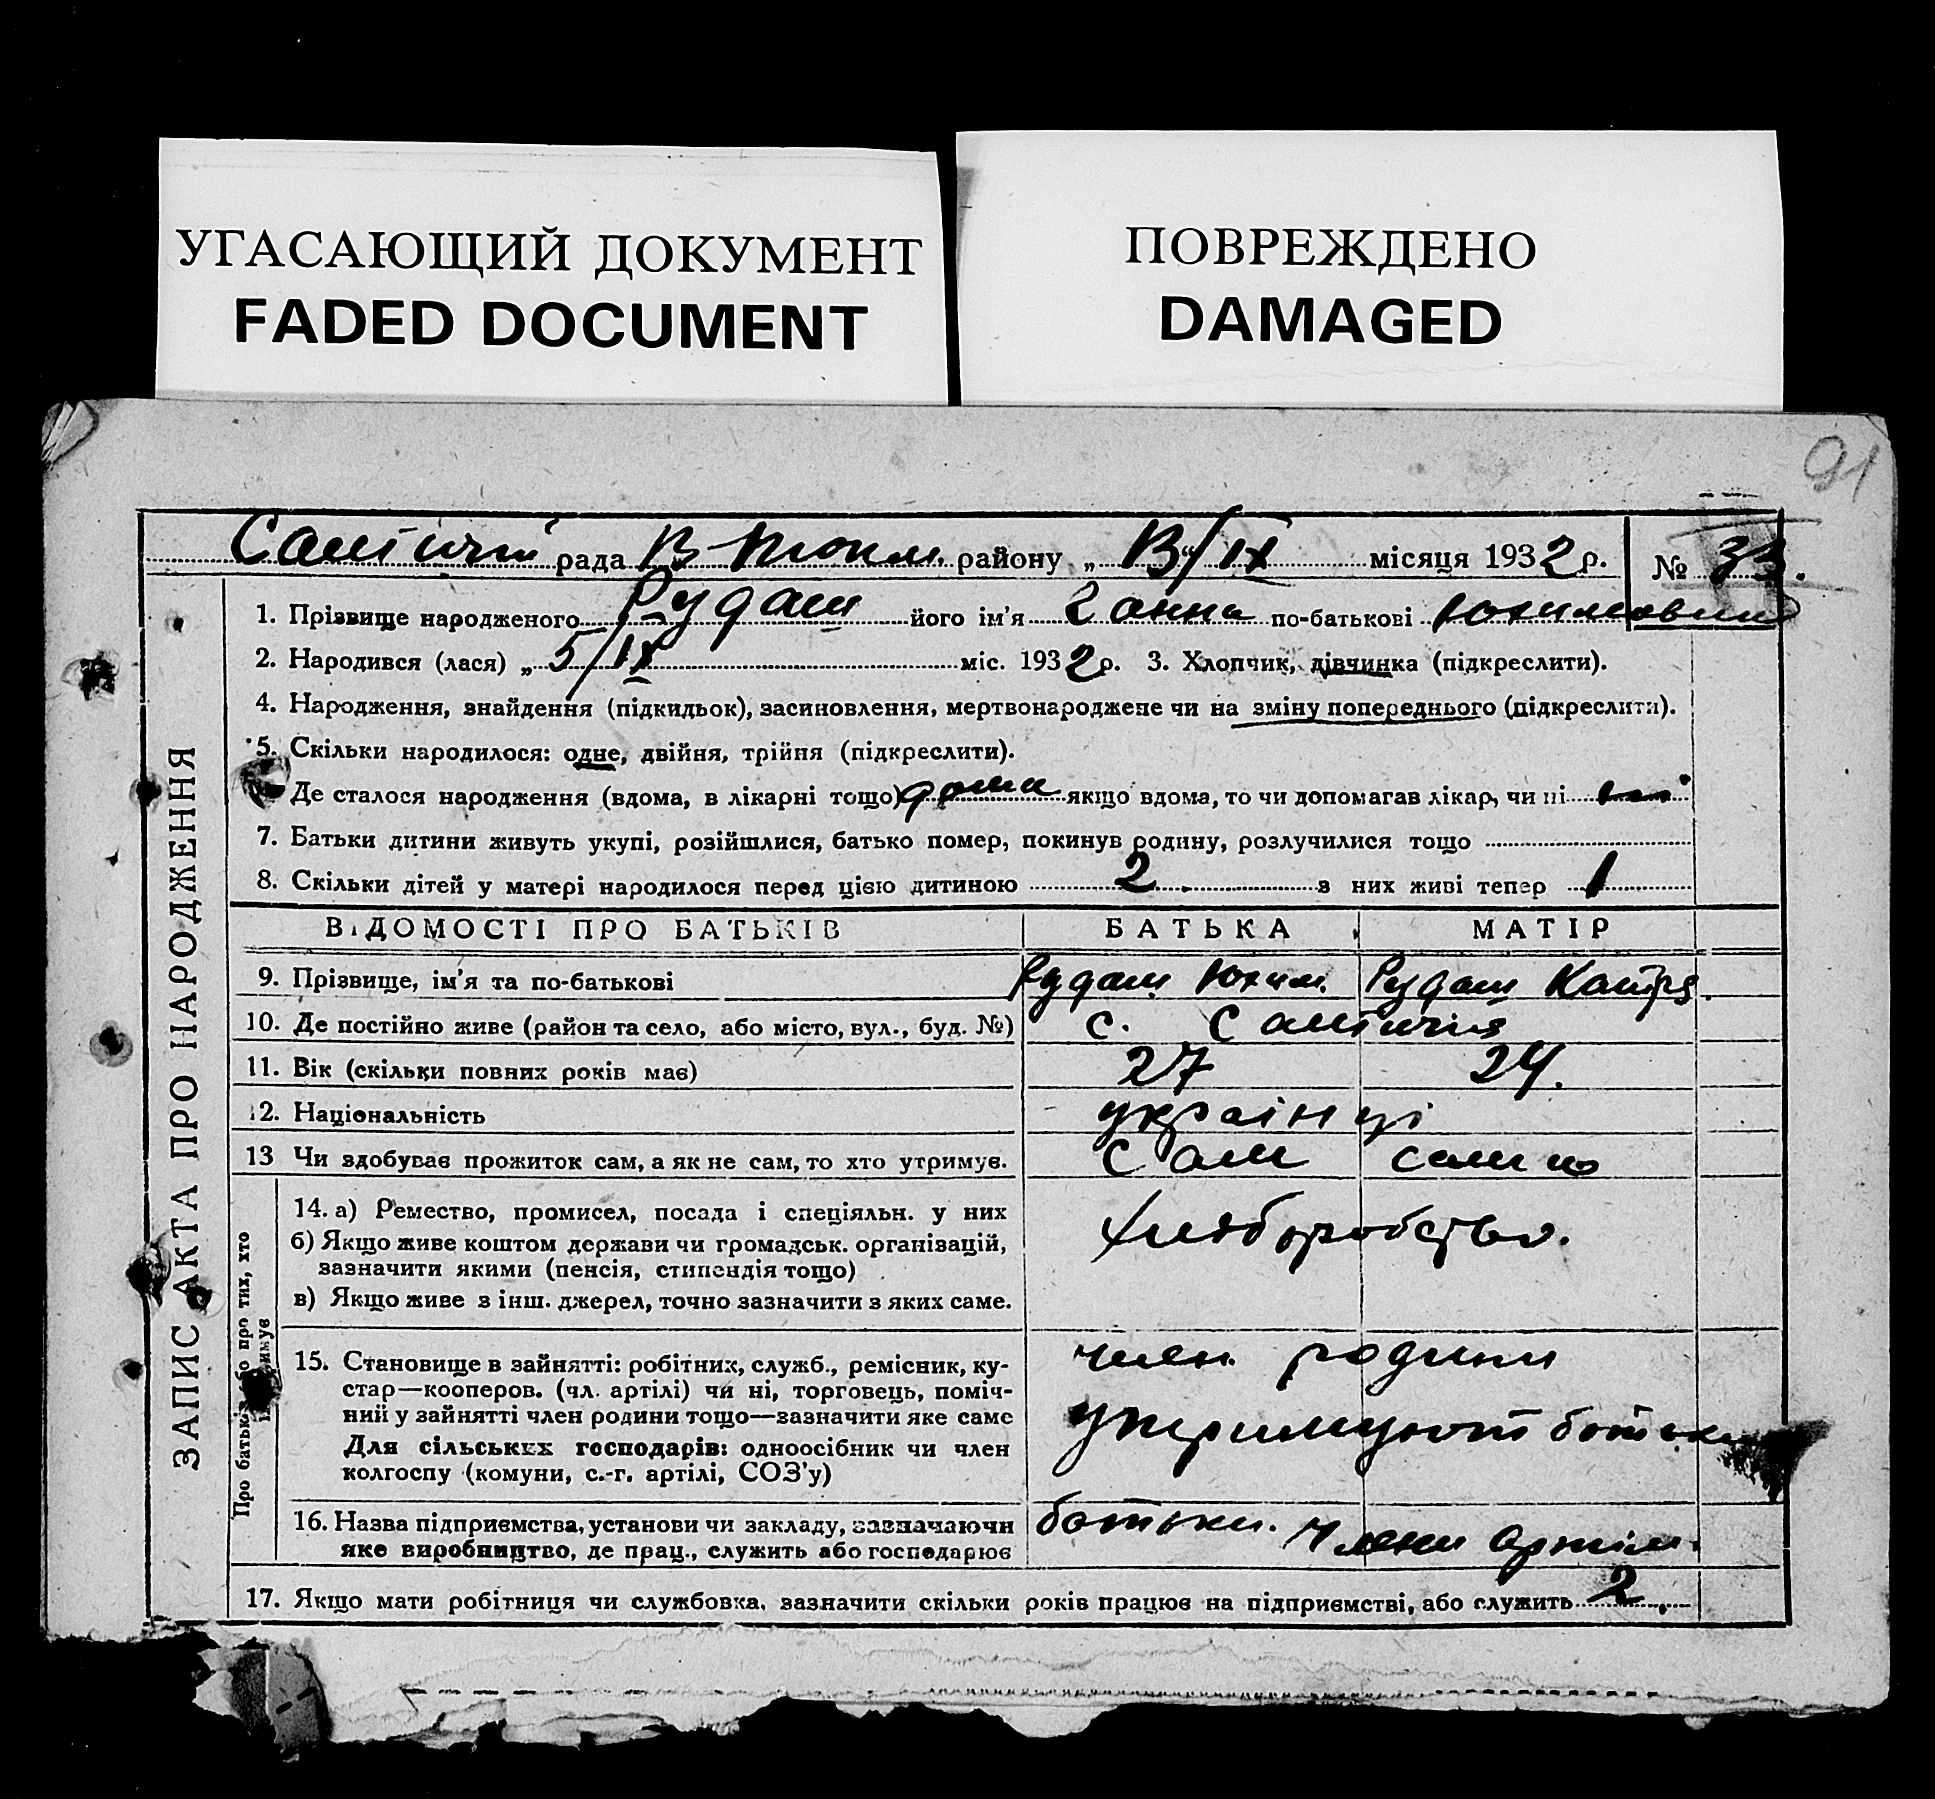 УГАСАЮЩИЙ ДОКУМЕНТ
FADED DOCUMENT
ПОВРЕЖДЕНО
DAMAGED
91
рада В-Токм. району „13/IX місяця 1932 р. № 33.
1. Прізвище народженого Рудаш його ім'я Ганна по-батькові
2. Народився (лася) „5/IX міс. 1932 р. 3. Хлопчик, дівчинка (підкреслити).
4. Народження, знайдення (підкидьок), засиновлення, мертвонароджене чи на зміну попереднього (підкреслити).
5. Скільки народилося: одне, двійня, трійня (підкреслити).
Де сталося народження (вдома, в лікарні тощо) дома якщо вдома, то чи допомагав лікар, чи ні
7. Батьки дитини живуть укупі, розійшлися, батько помер, покинув родину, розлучилися тощо
8. Скільки дітей у матері народилося перед цією дитиною 2 з них живі тепер 1
ЗАПИС АКТА ПРО НАРОДЖЕННЯ
ВІДОМОСТІ ПРО БАТЬКІВ БАТЬКА МАТІР
9. Прізвище, ім'я та по-батькові Рудаш Юхим. Рудаш Катря.
10. Де постійно живе (район та село, або місто, вул., буд. №) с.
11. Вік (скільки повних років має) 27 24.
12. Національність українці
13 Чи здобував прожиток сам, а як не сам, то хто утримує. Сам сама
Про батька або про тих, хто
14. а) Ремество, промисел, посада і спеціяльн. у них Хліборобство.
б) Якщо живе коштом держави чи громадськ. організацій,
зазначити якими (пенсія, стипендія тощо)
в) Якщо живе з інш. джерел, точно зазначити з яких саме.
15. Становище в зайнятті: робітник, служб., ремісник, ку-
стар—кооперов. (чл. артілі) чи ні, торговець, поміч-
ний у зайнятті член родини тощо—зазначити яке саме
Для сільських господарів: одноосібник чи член
колгоспу (комуни, с.-г. артілі, СОЗ'у)
член родини
утримують батьки
16. Назва підприємства, установи чи закладу, зазначаючи
яке виробництво, де прац., служить або господарює
батьки. Члени артілі.
17. Якщо мати робітниця чи службовка, зазначити скільки років працює на підприємстві, або служить 2